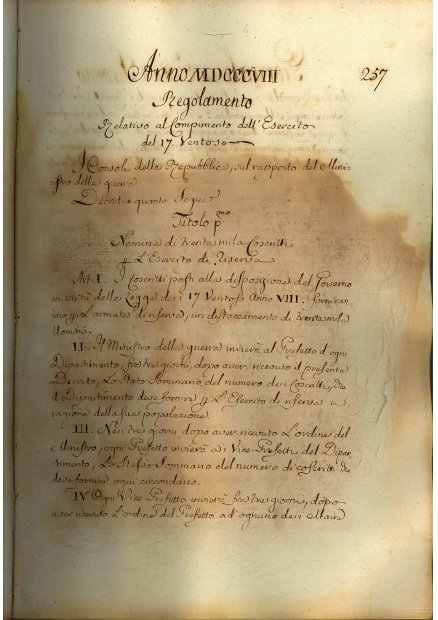 Anno MDCCCVIII 257
Regolamento
Relativo al Compimento dell'Esercito
del 17. Ventoso
I Consoli della Repubblica, sul rapporto del Mini-
stro della guera
Decreta quanto Segue
Titolo pmo
Nomina di trenta mila Coscritti
p L'Esercito di Riserva
Art I. I Coscritti posti alla disposizione del Governo
in virtù della Legge dei 17 Ventoso Anno VIII.
p L'armata di riserva, un distaccamento di trenta mila
Uomini.
II. Il Ministro della guera invierà al Prefetto d'ogni
Dipartimento fra tre giorni, dopo aver ricevuto il presente
Decreto, Lo Stato Sommario del numero dei Coscritti, che
il Dipartimento deve fornire p L'Esercito di riserva a
ragione della sua popolazione
III. Nei tre giorni dopo aver ricevuto L'ordine del
Ministro, ogni Prefetto invierà ai Vice-Prefetti del Dipar-
timento, Lo Stesso Sommario del numero di coscritti che
deve fornire ogni circondario.
IV Ogni Vice Prefetto invierà fra tre giorni, dopo
aver ricevuto L'ordine del Prefetto ad'ognuno dei Maire